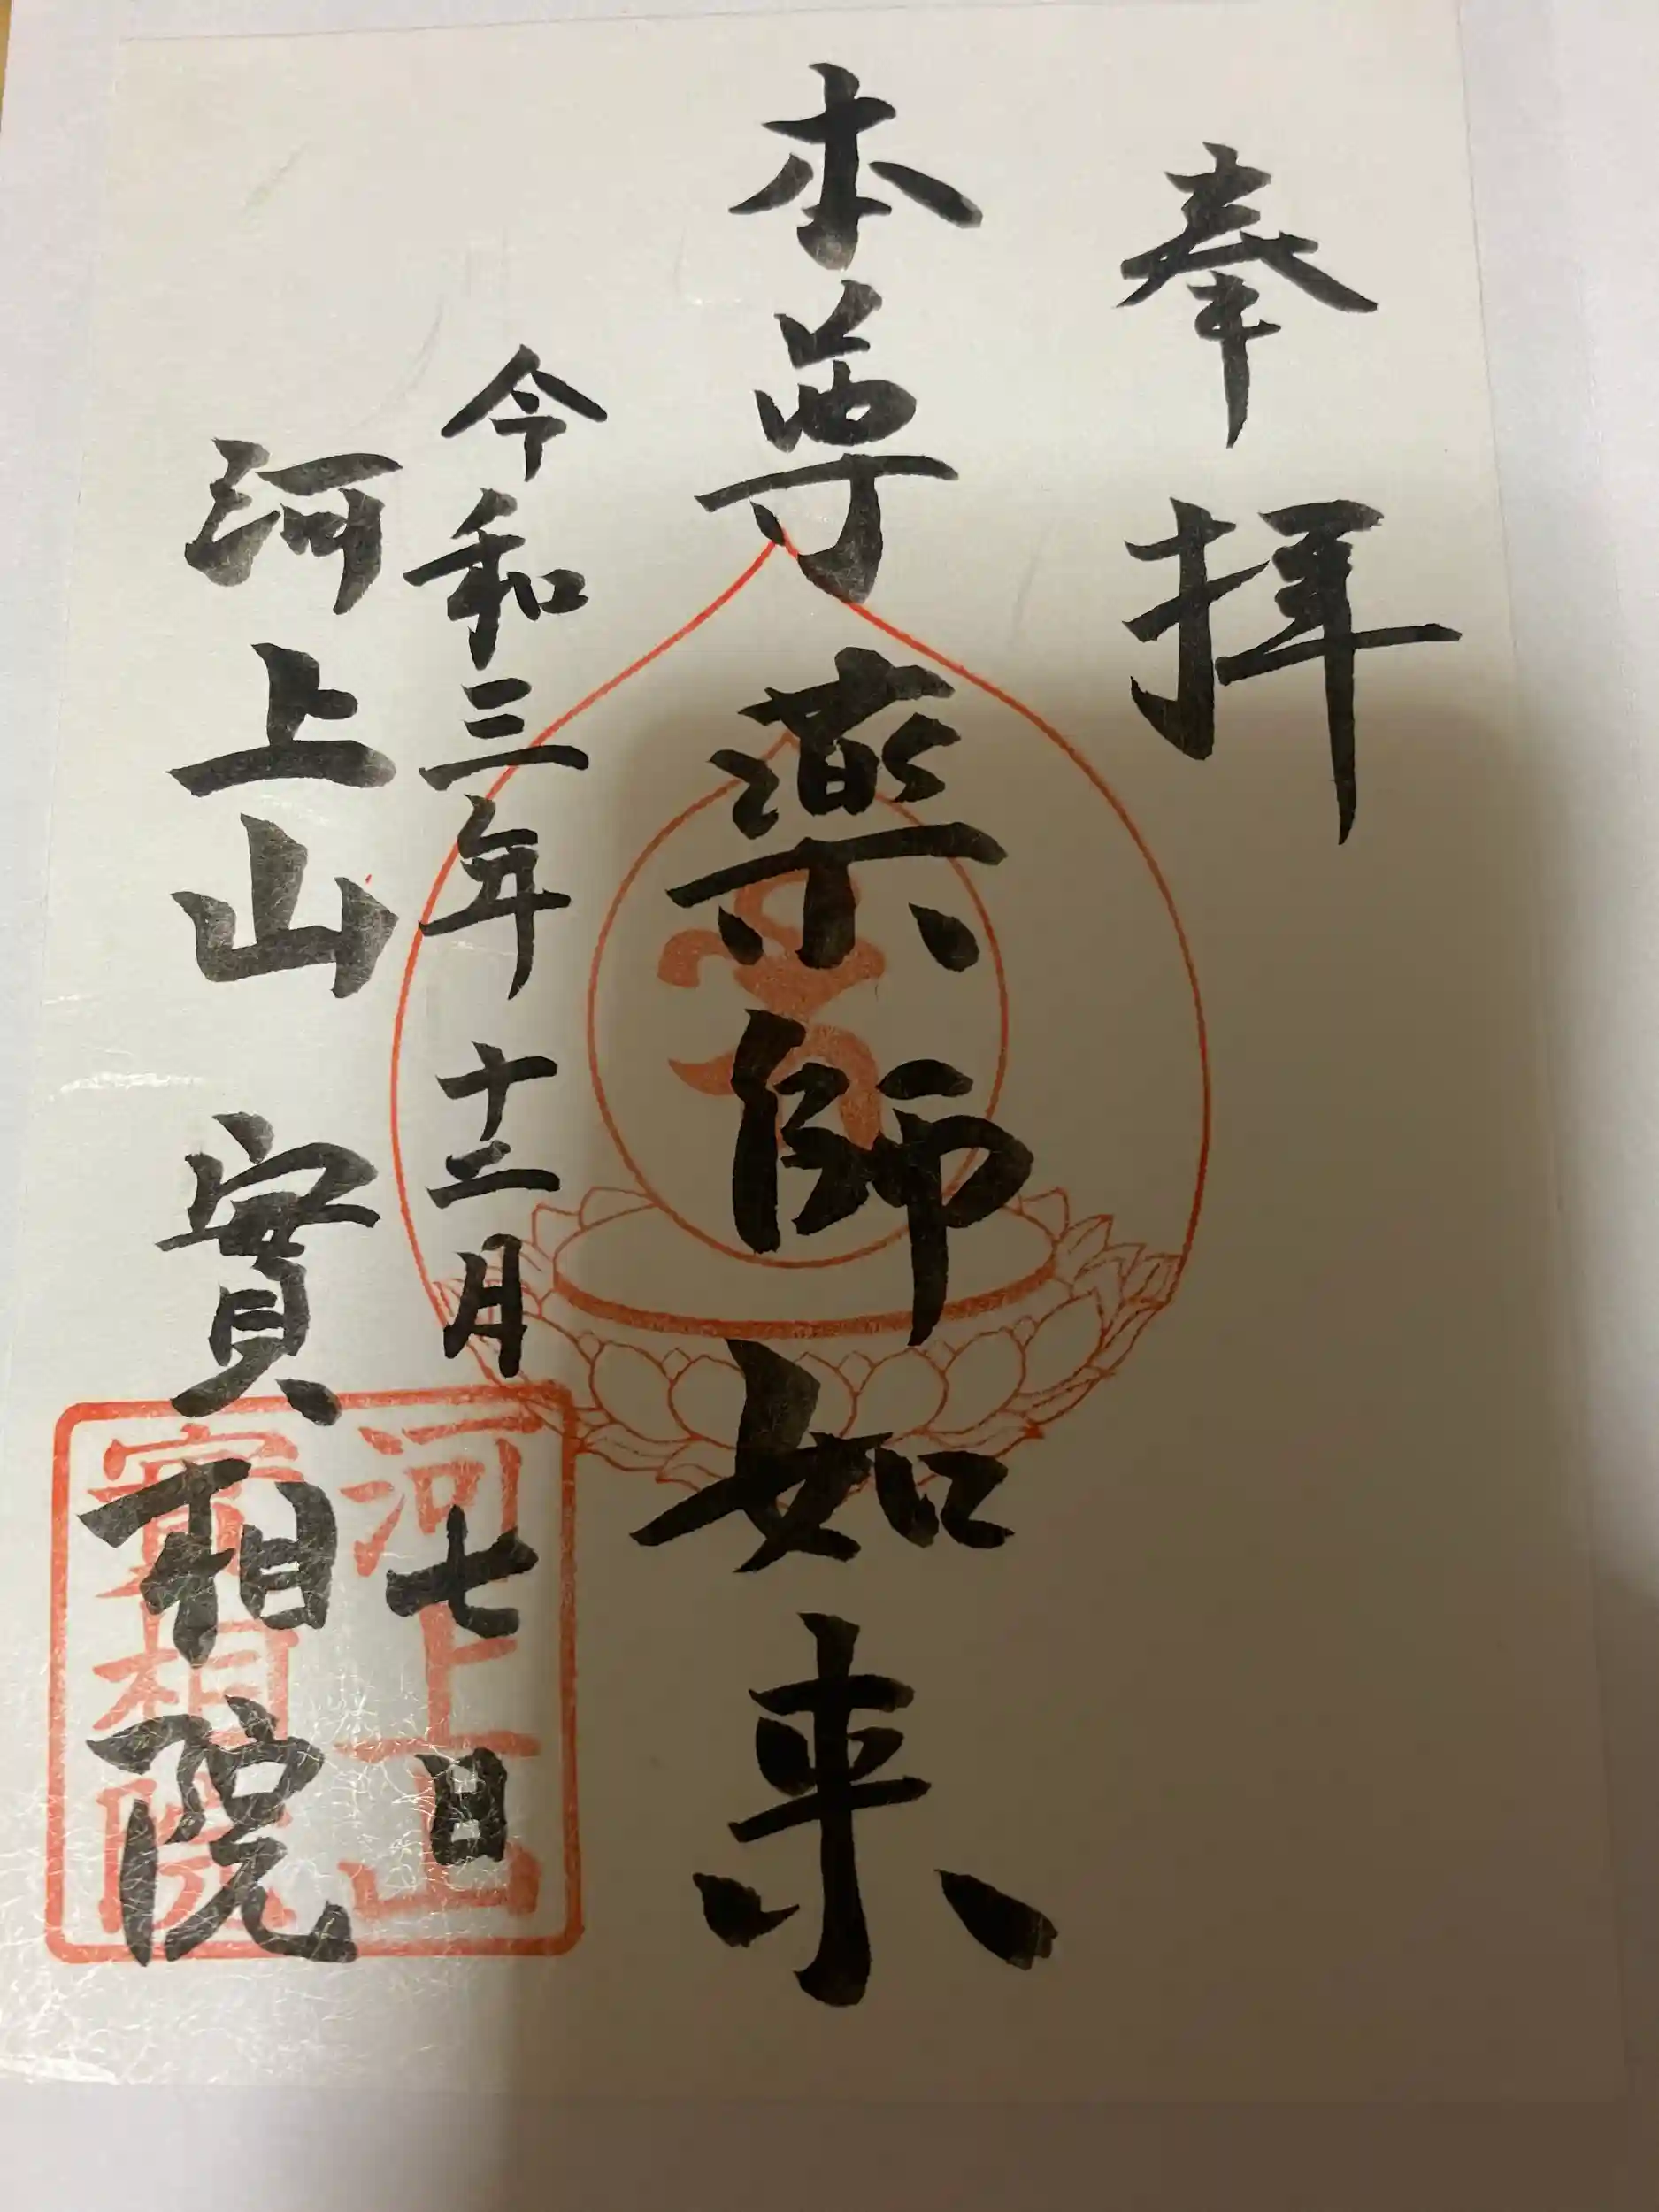 奉拝
本尊 薬師如来
令和三年 十二月 七日
河上山 實相院
河上山
實相院